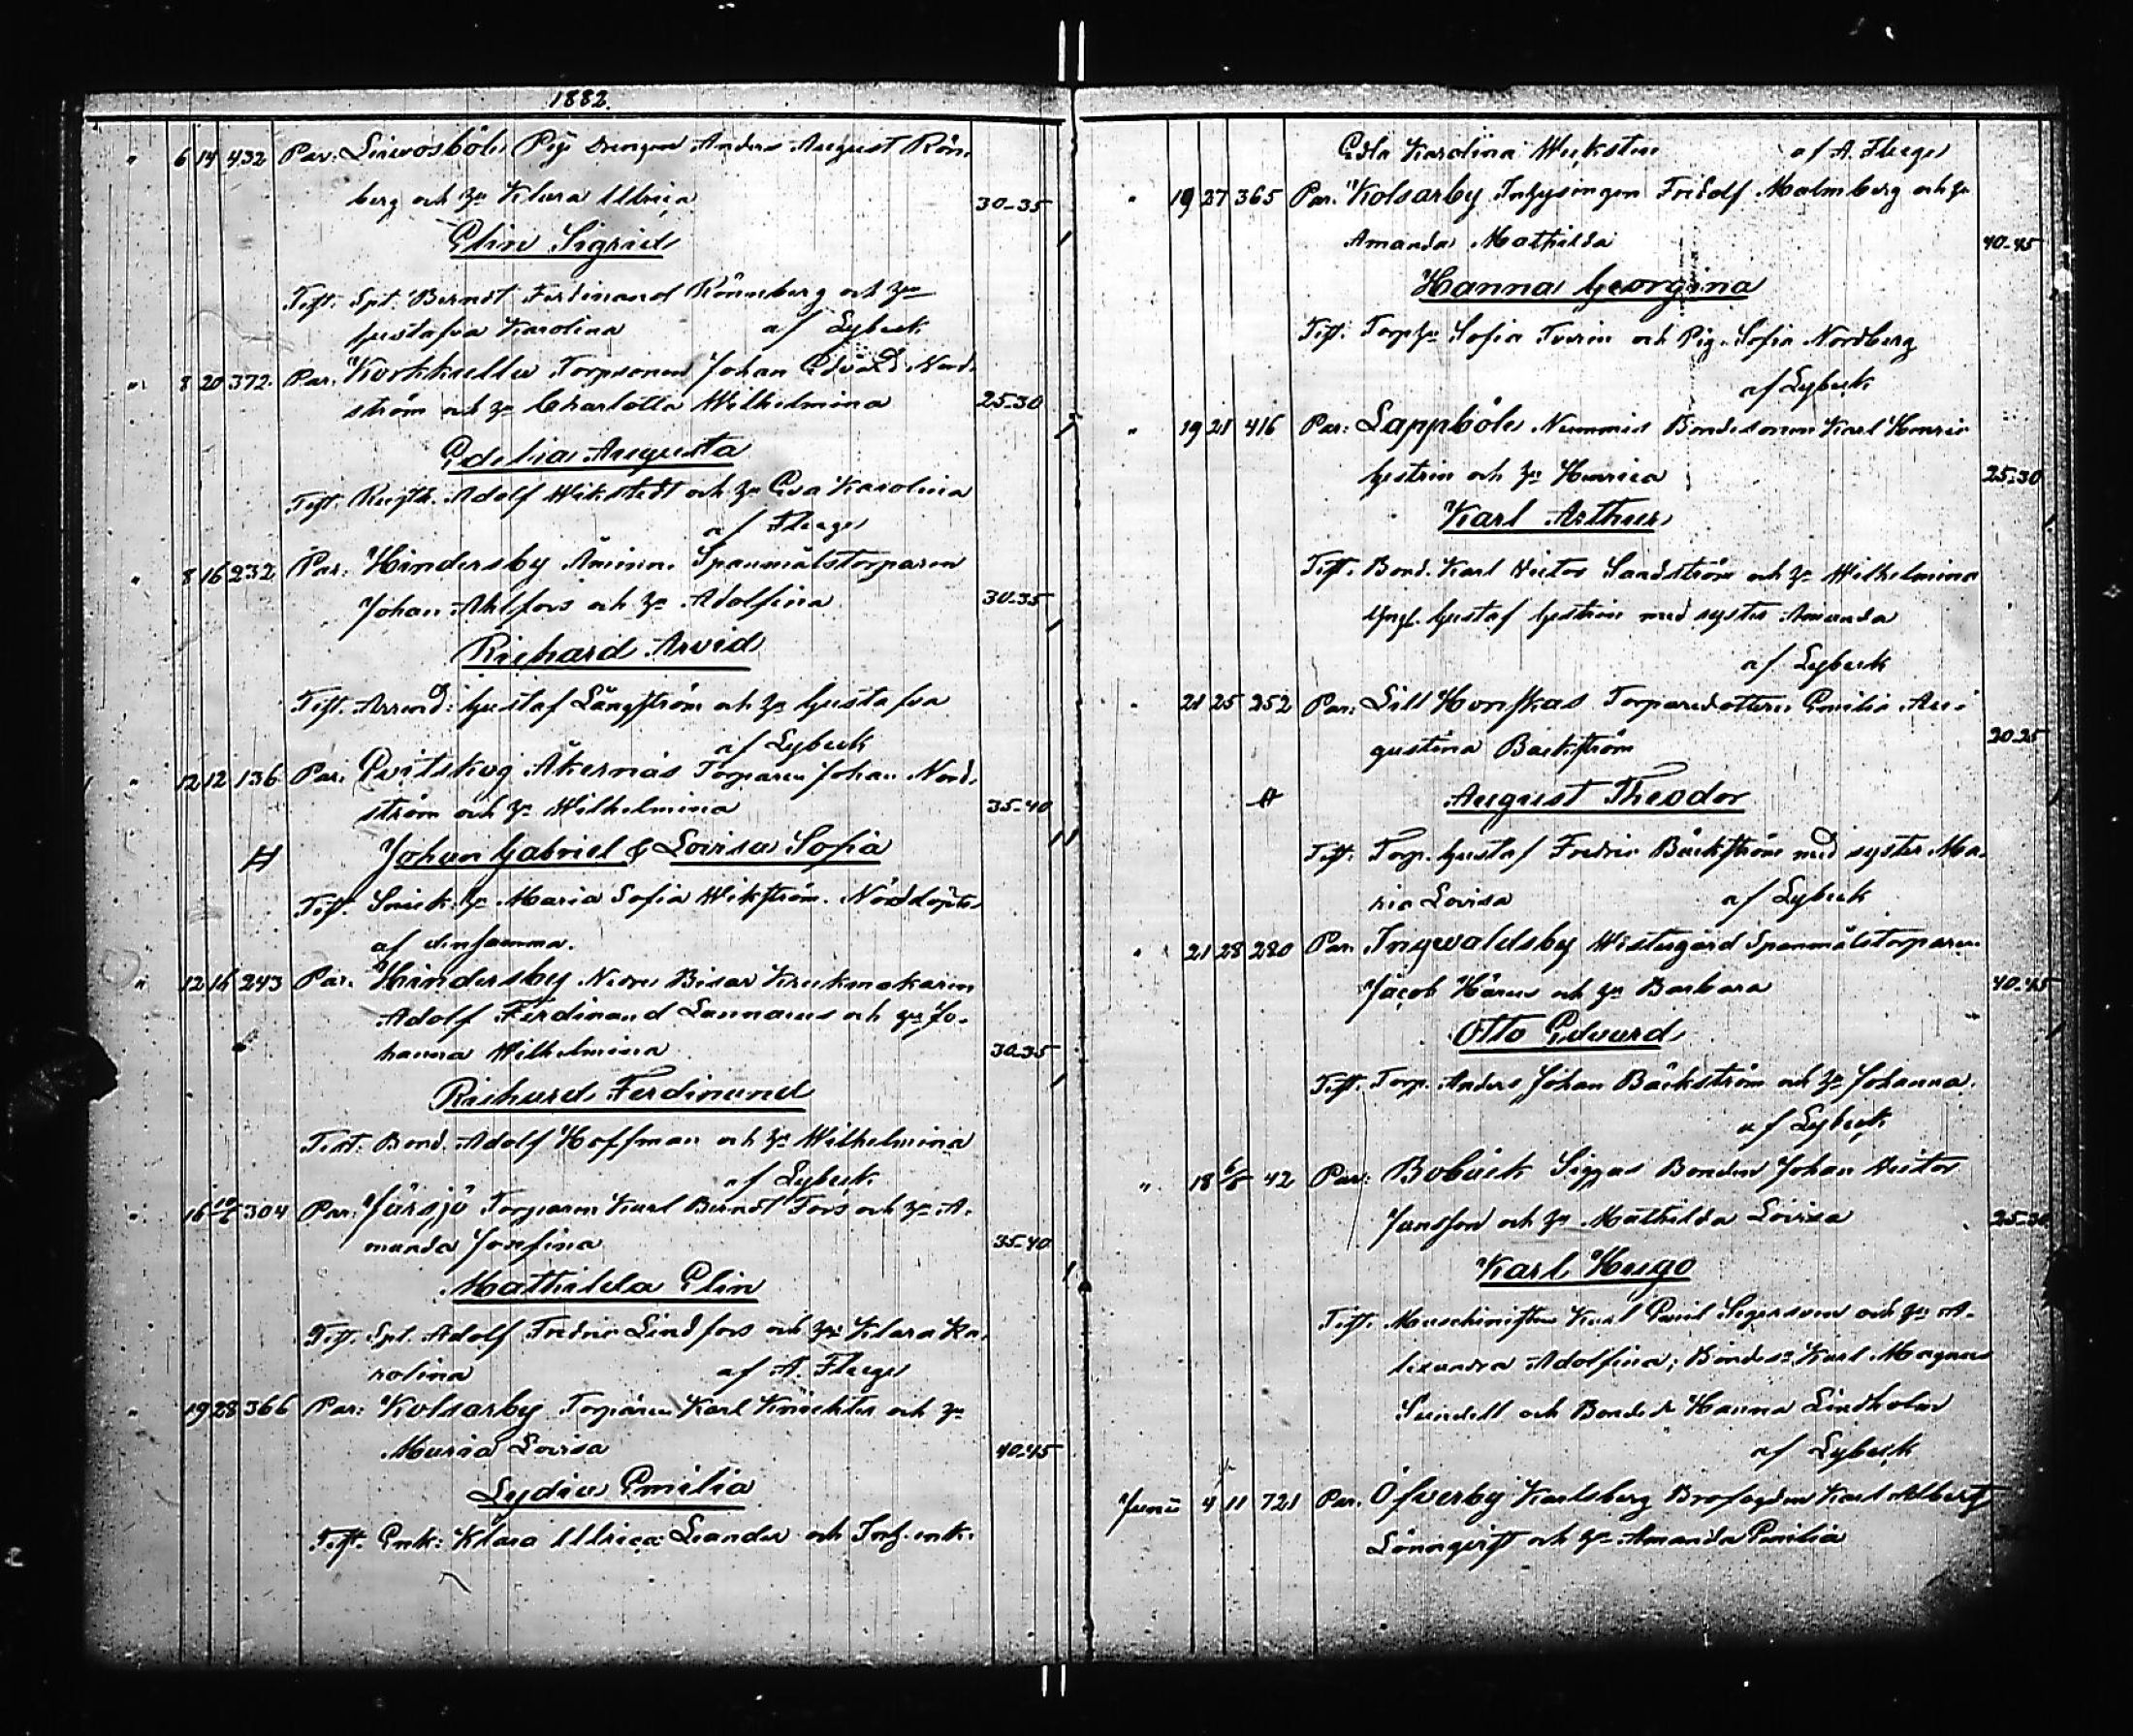 1882.
" 6 14 432 Par: Liewosböle Pigi drengen Anders August Rön-
berg och hu Klara Ulrica 30-35
Elin Sigrid
Test. Spt. Berndt Ferdinand Rönnberg och hu
Gustafva Karolina af Lybeck
" 8 20 372 Par. Korkkulla Torpsonen Johan Edvard Nord-
ström och hu Charlotta Wilhelmina 25-30
Edelia Augusta
Test. Adolf Wikstedt och hu Eva Karolina
af Fleege
" 8 16 232 Par: Hindersby Åminne Spanmålstorparen
Johan Ahlfors och hu Adolfina 30-35
Richard Arvid
Test. Arrend: Gustaf Långström och hu Gustafva
af Lybeck
" 12 12 136 Par: Qvitskog Åkernäs Torparen Johan Nord-
ström och hu Wilhelmina 35-40
Johan Gabriel & Lovisa Sofia
Test. hu Maria Sofia Wikström. Nöddöpte
af densamma.
" 12 16 243 Par. Hindersby Nedre Bisar Krukmakaren
Adolf Ferdinand Lannaeus och hu Jo-
hanna Wilhelmina 30-35
Richard Ferdinand
Test: Bond. Adolf Hoffman och hu Wilhelmina
af Lybeck
" 16 304 Par: Järsjö Torparen Karl Berndt Fors och hu A-
manda Josefina 35-40
Mathilda Elin
Test. Spt. Adolf Fredric Lindfors och hu Klara Ka-
rolina af A. Fleege
" 19 28 366 Par: Kolsarby Torparen Karl Knichter och hu
Maria Lovisa 40-45
Lydia Emilia
Test. Enk: Klara Ulrica Leander och Inh. enk:
Edla Karolina Weckstén af A. Fleege
" 19 27 365 Par. Kolsarby Inhysingen Fridolf Malmberg och hu
Amanda Mathilda 40-45
Hanna Georgina
Test. Torp hu Sofia Tverin och Pig. Sofia Nordberg
af Lybeck
" 19 21 416 Par: Lappböle Nummis Bondesonen Karl Henric
Gestrin och hu Henrica 25-30
Karl Arthur
Test. Bond. Karl Victor Sandström och hu Wilhelmina
Yngl. Gustaf Gestrin med syster Amanda
af Lybeck
" 21 25 252 Par: Lill Honskas Torparedottern Emilia Au-
gustina Bäckström 20-25
August Theodor
Test. Torp. Gustaf Fredric Bäckström med syster Ma-
ria Lovisa af Lybeck
" 21 28 280 Par. Ingwaldsby Westergård Spanmålstorparen
Jacob Hårus och hu Barbara 40-45
Otto Edvard
Test. Torp. Anders Johan Bäckström och hu Johanna.
af Lybeck
" 18 6/5 42 Par: Bobäck Siggas Bonden Johan Victor
Jansson och hu Mathilda Lovisa 25-30
Karl Hugo
Test. Maschinisten Karl Emil Segersven och hu A-
lexandra Adolfina; Bondes: Karl Magnus
Sundell och Bonded: Hanna Lindholm
af Lybeck
Junii 4 11 721 Par. Öfverby Karlsberg Brofogden Karl Albert
Lönnqvist och hu Amanda Emilia